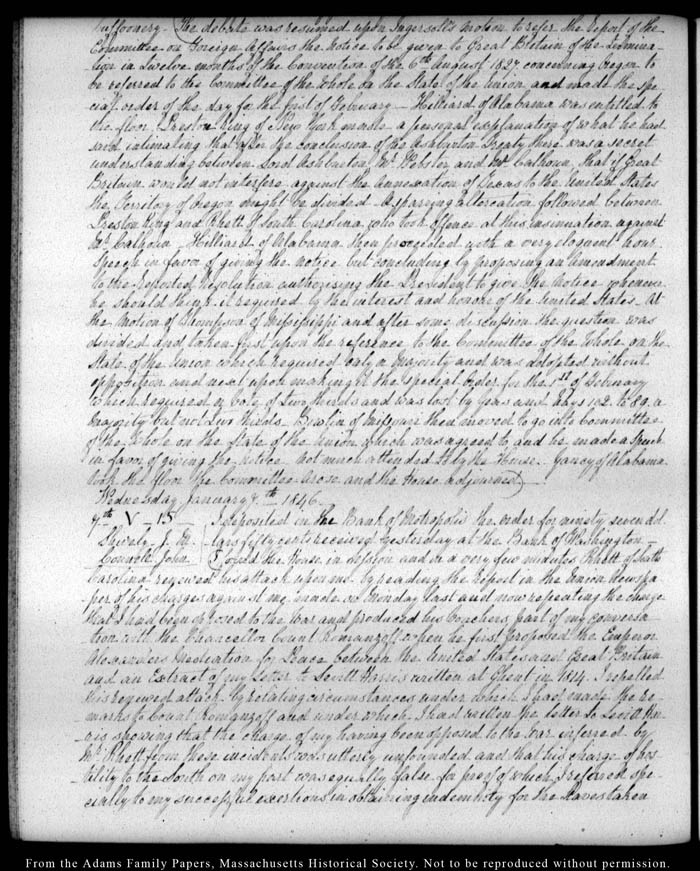 buffoonery – The debate was resumed upon Ingersoll's motion to refer the Report of the
Committee on Foreign Affairs the notice to be given to Great Britain of the termina-
tion in twelve months of the Convention of the 6th August 1827 concerning Oregon to
be referred to the Committee of the whole on the State of the Union and made the spe-
cial order of the day for the first of February – Hilliard of Alabama was entitled to
the floor. Preston King of New York made a personal explanation of what he had
said intimating that after the conclusion of the Ashburton Treaty there was a secret
understanding between Lord Ashburton, Mr Webster and Mr Calhoun, that if Great
Britain would not interfere against the annexation of Texas to the United States
the Territory of Oregon might be divided – A sparring altercation followed between
Preston King and Rhett of South Carolina, who took offence at this insinuation against
Mr Calhoun – Hilliard of Alabama then proceeded with a very eloquent hour
speech in favor of giving the notice but concluding by proposing an amendment
to the reported resolution authorising the President to give the notice whenever
he should think it required by the interest and honour of the United States. At
the motion of Thompson of Mississippi and after some discussion the question was
divided and taken first upon the reference to the Committee of the whole on the
State of the Union which required only a majority and was adopted without
opposition and next upon making it the special Order for the 1st of February
which required a vote of two thirds and was lost by yeas and nays 102 to 82. a
majority but not two thirds – of Missouri then moved to go into Committee
of the whole on the state of the Union which was agreed to and he made a speech
in favor of giving the notice not much attended to by the House. Yancey of Alabama
took the floor the Committee arose and the House adjourned
Wednesday January 7th 1846.
7th V – 15 – I deposited in the Bank of Metropolis the order for ninety seven dol-
Shively – J. M lars fifty cents received yesterday at the Bank of Washington –
Councll John I found the House in session and in a very few minutes Rhett of South
Carolina renewed his attack upon me by reading the report in the Union newspa-
per of his charges against me made on Monday last and now repeating the charge
that I had been opposed to the war and produced his vouchers part of my conversa-
tion with the Chancellor Count Romanzoff when he first proposed the Emperor
Alexander's mediation for Peace between the United States and Great Britain
and an Extract of my Letter to Levitt Harris written at Ghent in 1814. I repelled
this renewed attack by relating circumstances under which I had made the re-
marks to Count Romanzoff and under which I had written the letter to Levitt Har-
ris showing that the charge of my having been opposed to the war inferred by
Mr Rhett from these incidents was utterly unfounded and that his charge of hos-
tility to the South on my part was equally false for proof of which I referred spe-
cially to my successful exertions in obtaining indemnity for the slaves taken
From the Adams Family Papers, Massachusetts Historical Society. Not to be reproduced without permission.